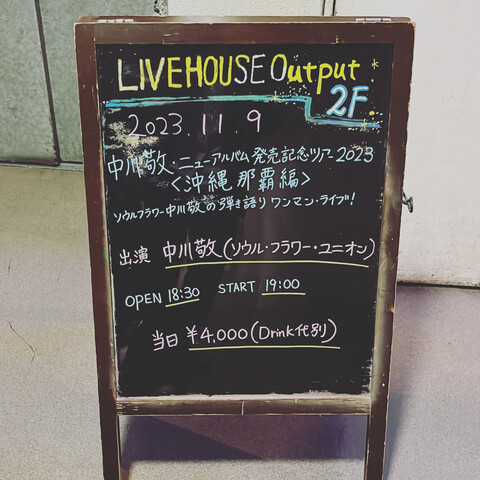 LIVEHOUSE Output
2F
2023.11.9
中川敬・ニューアルバム発売記念ツアー2023
<沖縄那覇編>
ソウルフラワー中川敬の弾き語りワンマン・ライブ!
出演 中川敬(ソウル・フラワー・ユニオン)
OPEN 18:30 START 19:00
当日 ¥4,000(Drink代別)